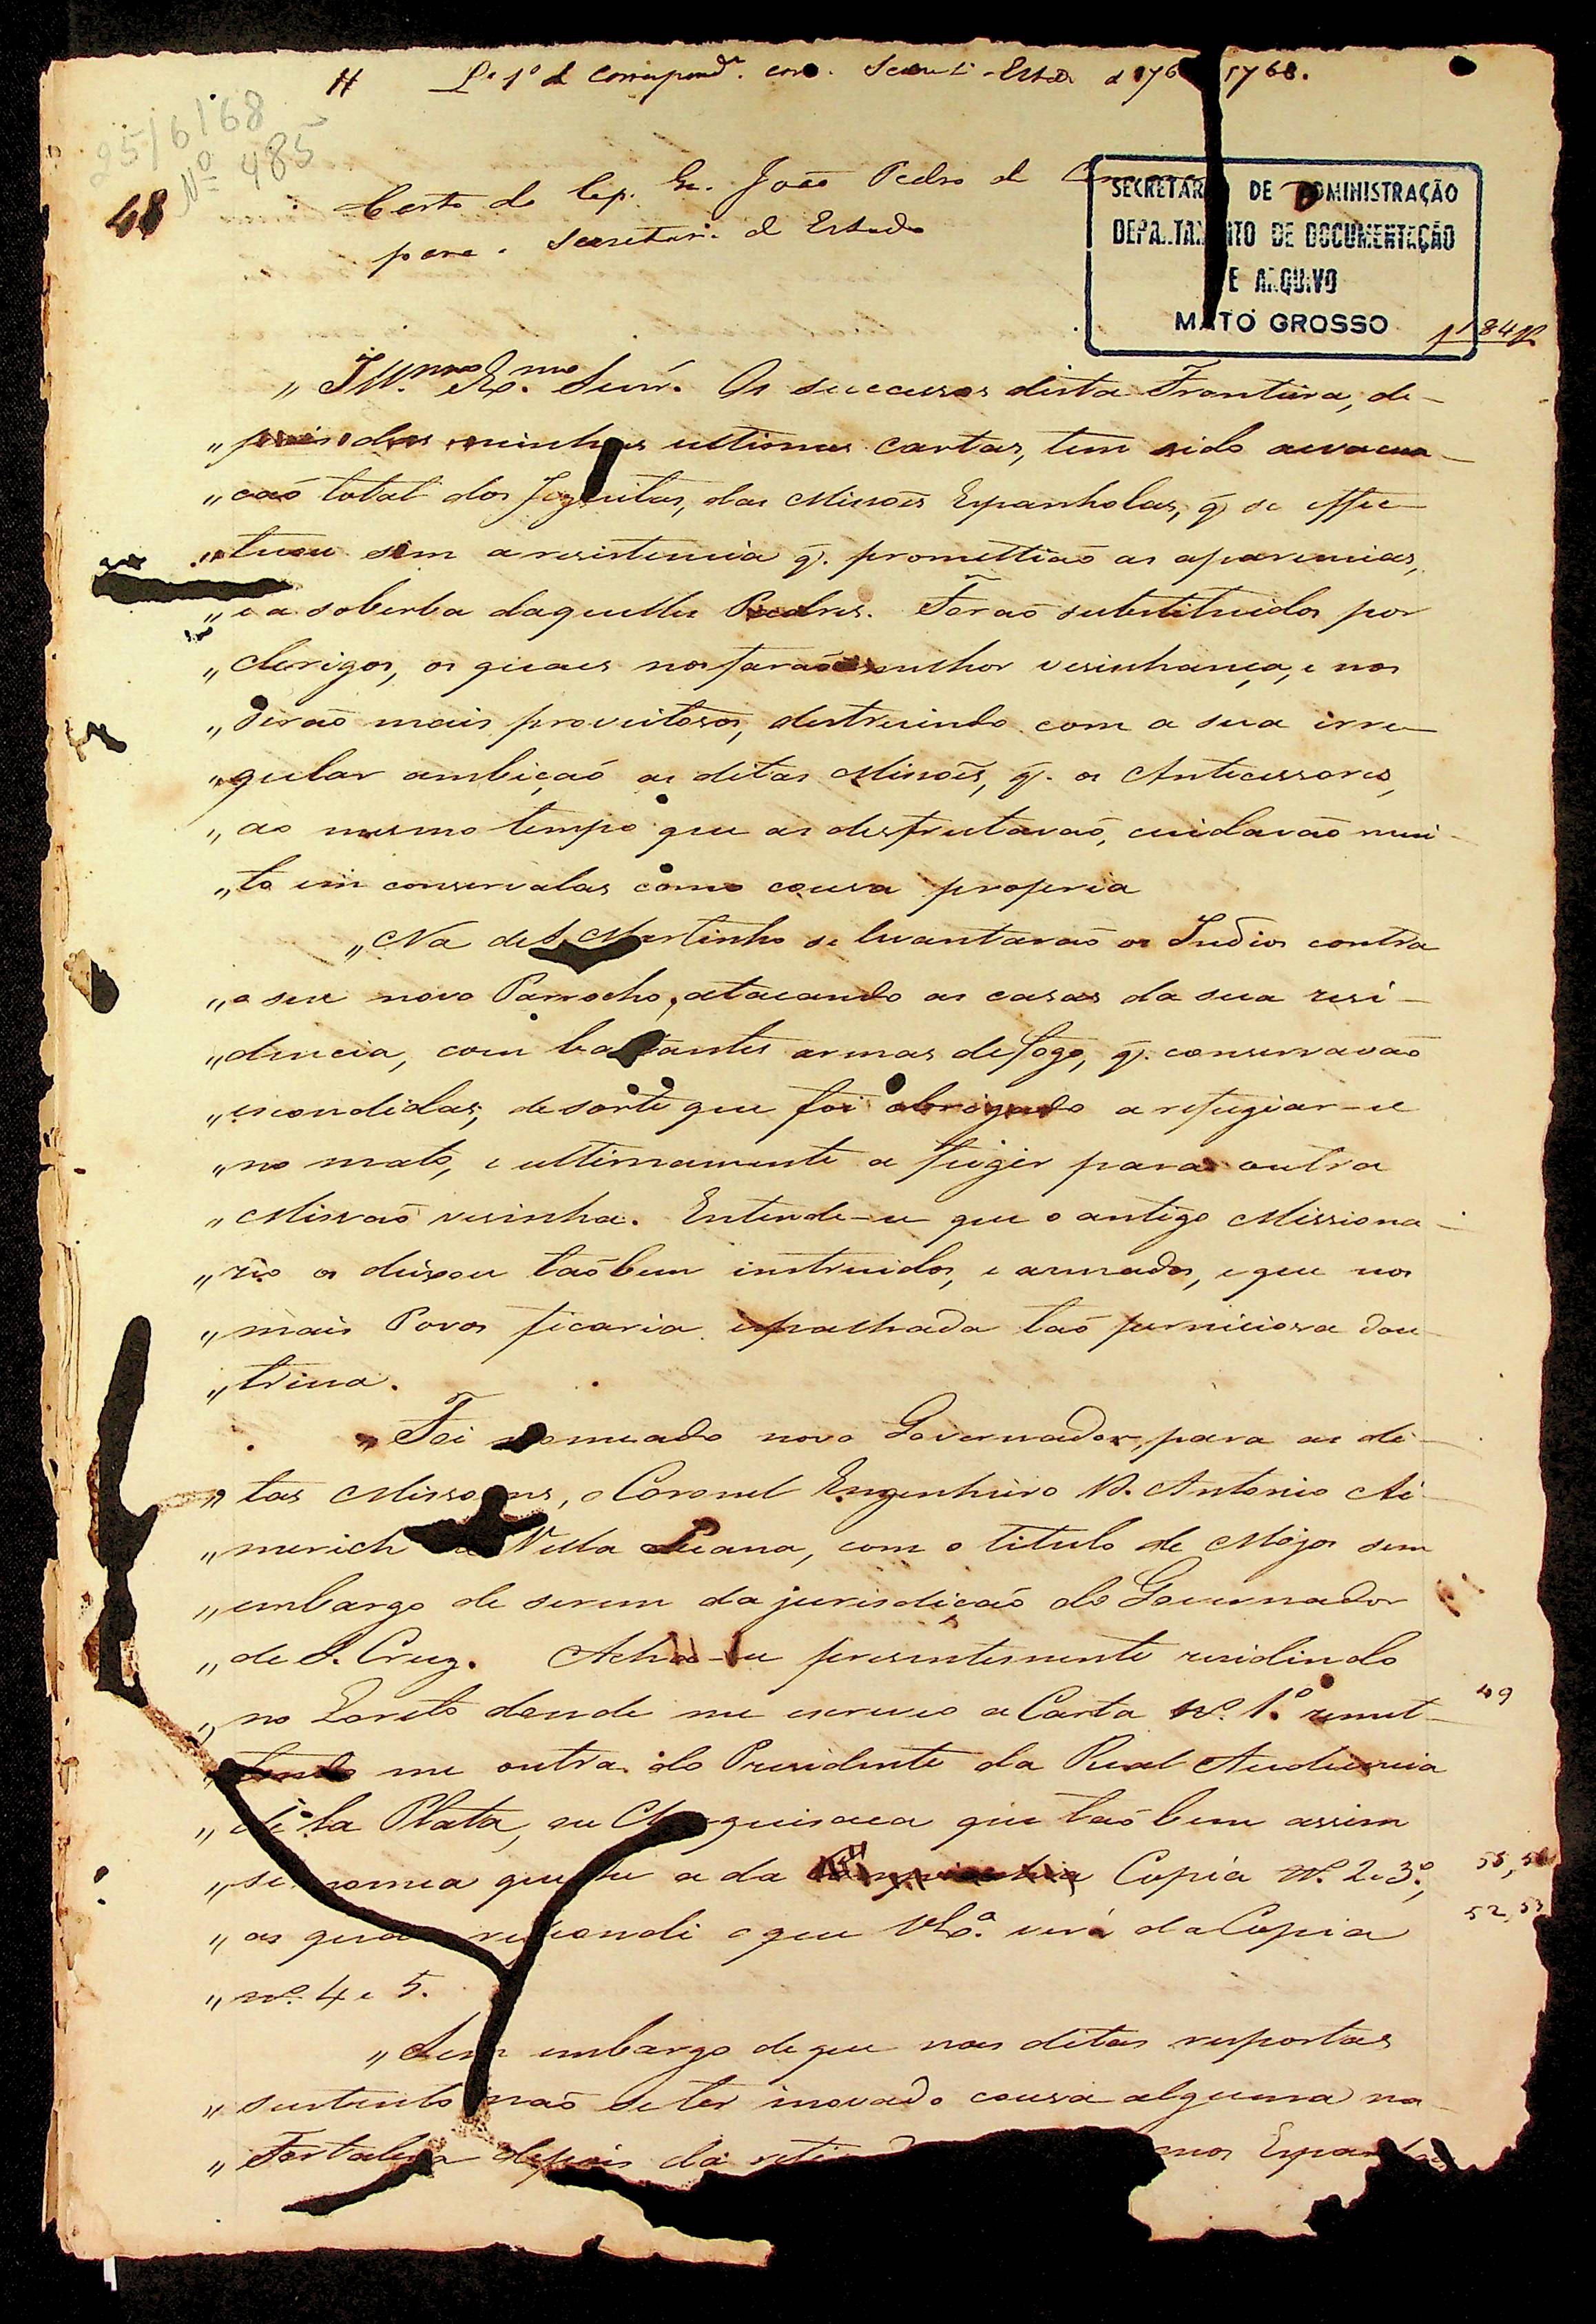 H L.º 1º d correspond.ª com. Secret. Estado d 176 1768.
25/6/68
Nº 485
48
Carta do Cap. Gn. João Pedro da
para a Secretaria d Estado
SECRETAR DE ADMINISTRAÇÃO
DEPARTAMENTO DE DOCUMENTAÇÃO
E ARQUIVO
MATO GROSSO
184
" Ill.mo Ex.mo Senr. Os successos desta Fronteira, de-
" pois das minhas ultimas cartas, tem sido a evacua-
" cão total dos Jezuitas, das Missões Espanholas, q̃ se effec-
" tuou sem a resistencia q̃. promettião as aparencias,
" e a soberba daquelles Padres. Forão substituidos por
" clerigos, os quaes nos farão melhor vesinhança, e nos
" serão mais proveitosos, destruindo com a sua irre-
" gular ambição as ditas Missões, q̃. os Antecessores,
" ao mesmo tempo que as desfrutavão, cuidavão mui-
" to em conservalas como cousa propria
" Na de S. Martinho se levantarão os Indios contra
" o seu novo Parrocho, atacando as casas da sua resi-
" dencia, com bastantes armas de fogo, q̃. conservavão
" escondidas; de sorte que foi obrigado a refugiar-se
" no mato, e ultimamente a fugir para outra
" Missão vesinha. Entende-se que o antigo Missiona-
" rio os deixou tão bem instruidos, e armados, e que nos
" mais Povos ficaria espalhada tão perniciosa dou-
" trina.
" Foi nomeado novo Governador, para as di-
" tas Missoens, o Coronel Engenheiro D. Antonio Ai-
" merich Villa Juana, com o titulo de Mojos sem
" embargo de serem da jurisdição do Governador
" de S. Cruz. Acha-se presentemente residindo
" no Loreto donde me escreveo a Carta Nº. 1º. remet-
49
" tendo me outra do Presidente da Real Audiencia
" de la Plata, ou Chuquisaca que tão bem assim
" se nomea que he a da Copia Nº. 2 e 3º,
55, 56
" as quaes respondi o que V. Ex.ª verá da Copia
52, 53
" nº. 4 e 5.
" Sem embargo de que nas ditas respostas
" sustento não se ter inovado cousa alguma na
" Fortaleza depois da reti mos Espanhoes